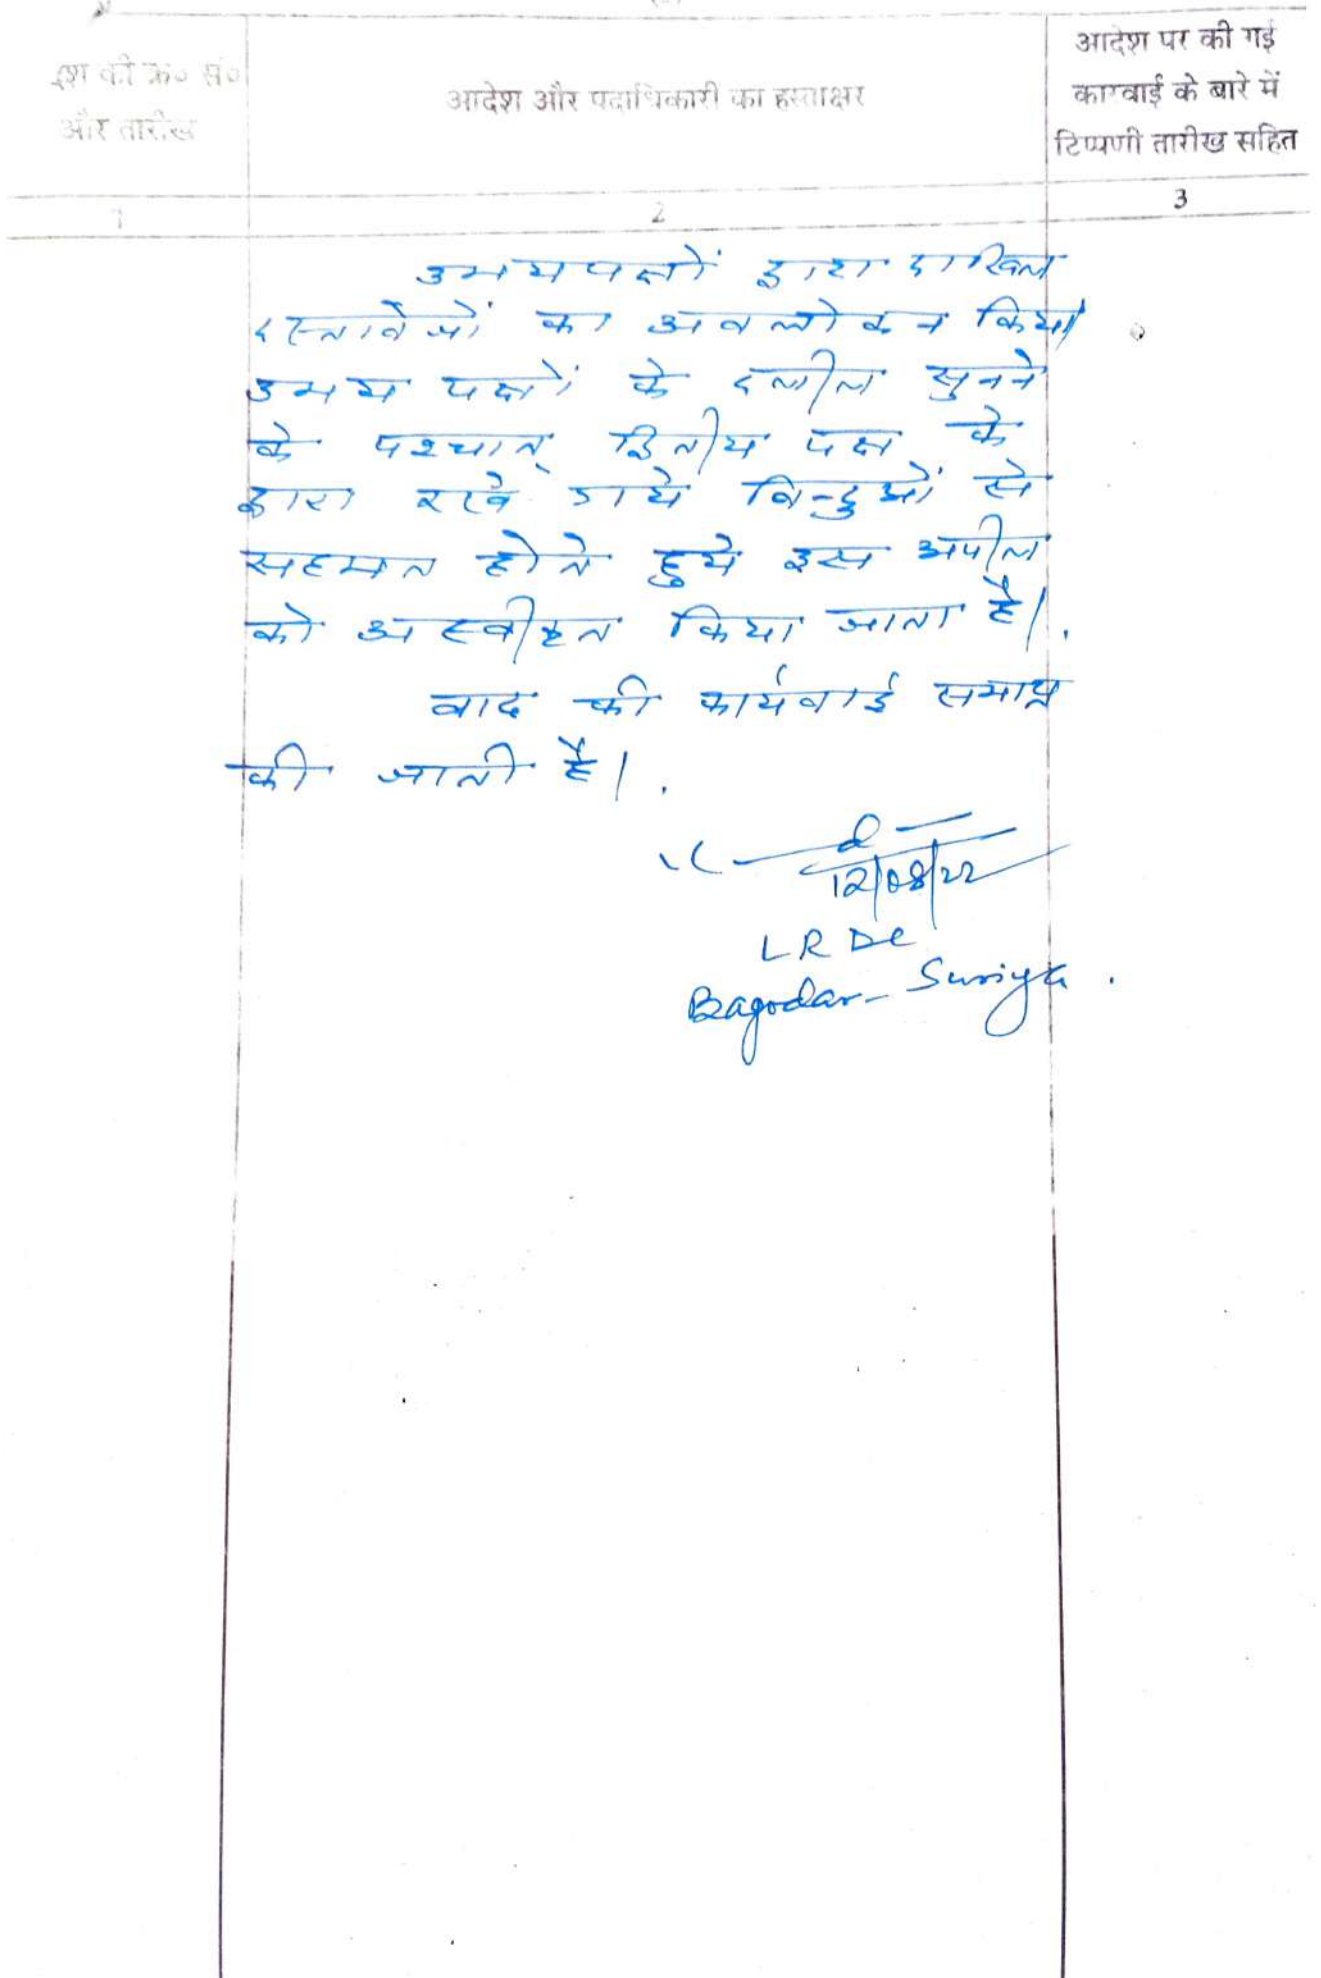 आदेश पर की गई
की क्र० सं०
आदेश और पदाधिकारी का हस्ताक्षर
कारवाई के बारे में
और तारीख
टिप्पणी तारीख सहित
1
2
3
उभयपक्षों द्वारा दाखिल
दस्तावेजों का अवलोकन किया
उभय पक्षों के दलील सुनने
के पश्चात् द्वितीय पक्ष के
द्वारा रखे गये बिन्दुओं से
सहमत होते हुये इस अपील
को अस्वीकृत किया जाता है।
वाद की कार्यवाई समाप्त
की जाती है।
12/08/22
LRDC
Bagodar-Suriya.